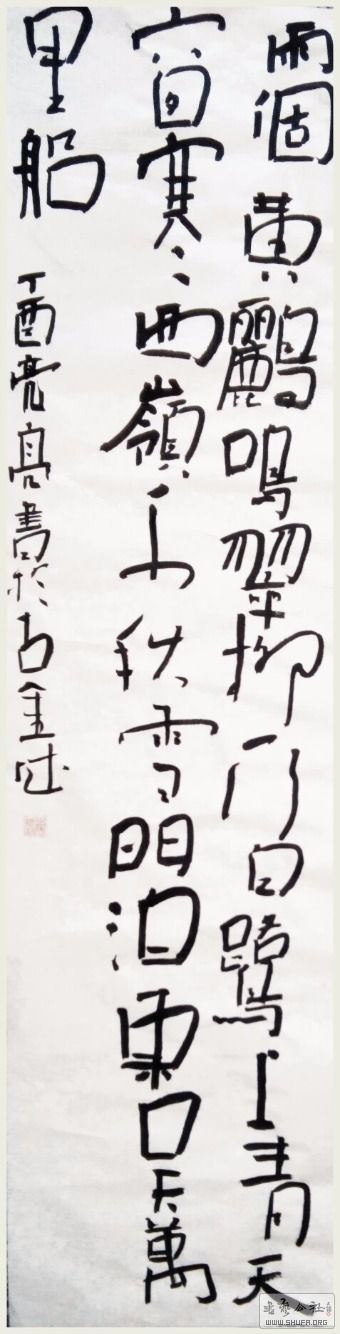 兩個黃鸝鳴翠柳一行白鷺上青天
窗寒西嶺千秋雪門泊東吳萬
里船
丁酉亮亮書於古金城
WWW.SHUFA.ORG